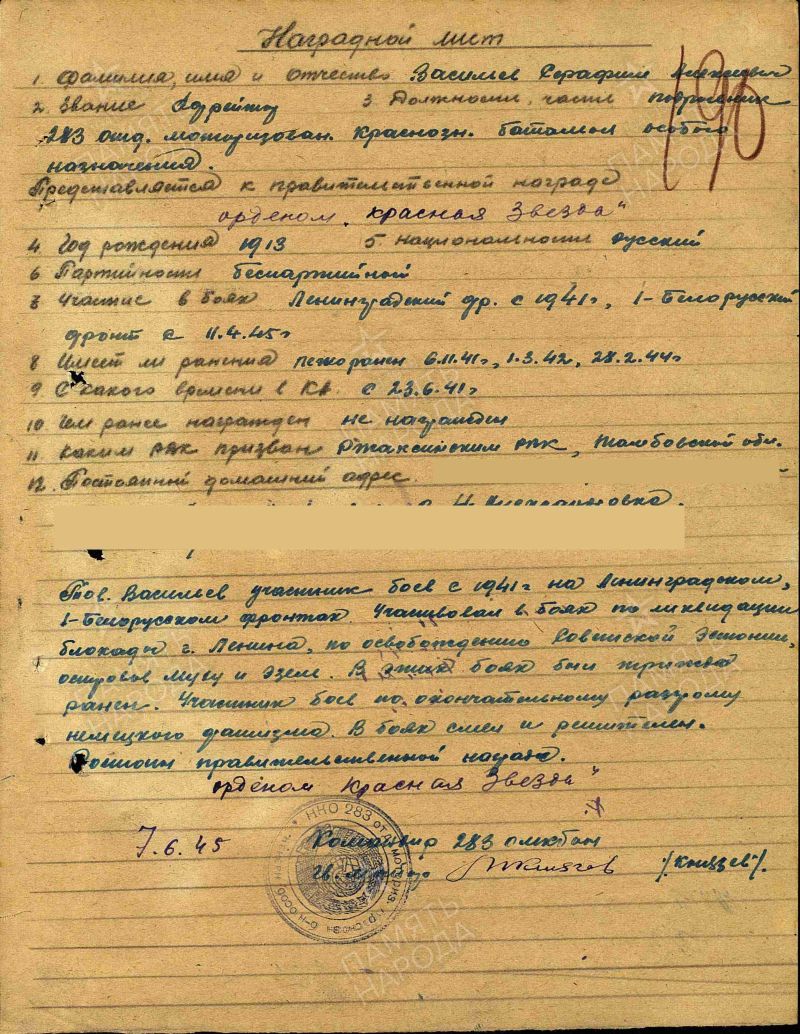 Наградной лист
196
1. Фамилия, имя и отчество Васильев Серафим Алексеевич
2. Звание 3. Должность, часть подрывник
283 отд. моторизован. Краснозн. батальон особого
назначения.
Представляется к правительственной награде
орденом "Красная Звезда"
4. Год рождения 1913 5. Национальность русский
6. Партийность беспартийный
7. Участие в боях Ленинградский фр. с 1941г, 1-Белорусский
фронт с 11.4.45г
8. Имеет ли ранения легко ранен 6.11.41г, 1.3.42, 28.2.44г
9. С какого времени в КА. с 23.6.41г
10. Чем ранее награжден не награжден
11. Каким РВК призван Ржаксинским РВК, Тамбовской обл.
12. Постоянный домашний адрес.
Тов. Васильев участник боев с 1941г на Ленинградском,
1-Белорусском фронтах. Участвовал в боях по ликвидации
блокады г. Ленина, по освобождению Советской Эстонии,
островов Муху и Эзель. В этих боях был трижды
ранен. Участник боев по окончательному разгрому
немецкого фашизма. В боях смел и решителен.
Достоин правительственной награды.
орденом Красная Звезда"
7.6.45 Командир 283 омкбон
гв. майор /Князев/.
НКО 283
ПАМЯТЬ НАРОДА